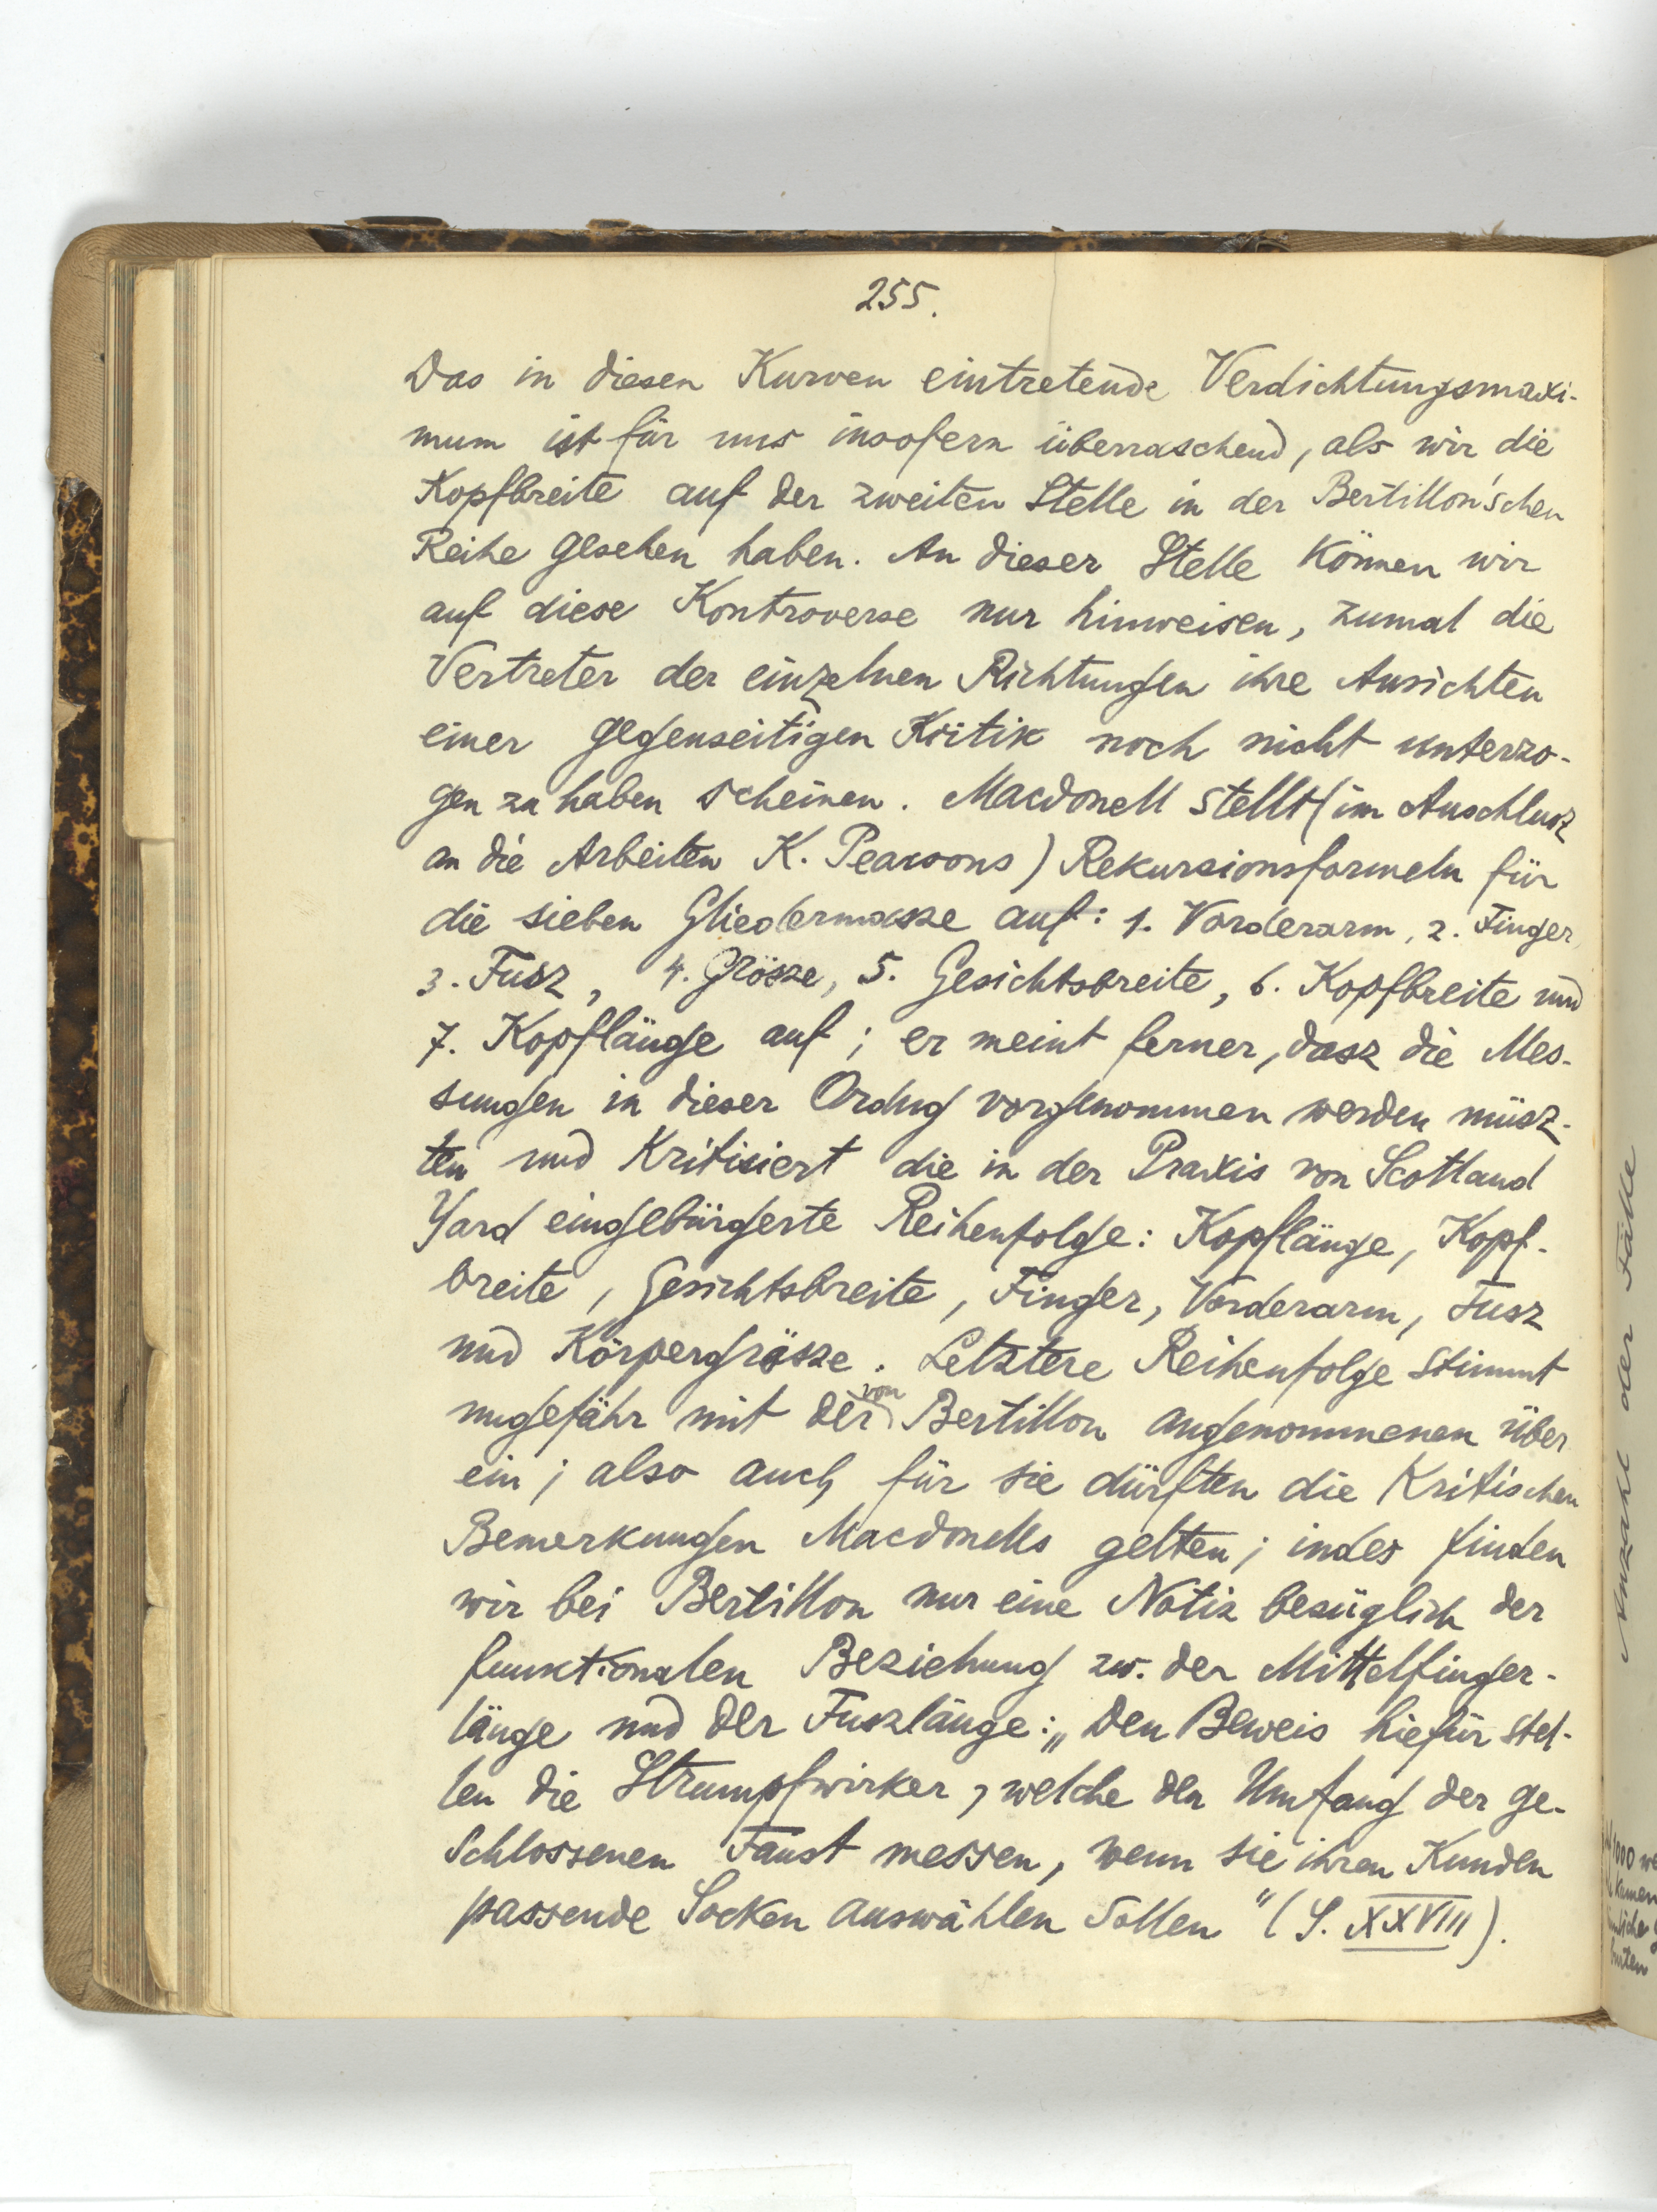 255.
Das in diesen Kurven eintretende Verdichtungsmaxi-
mum ist für uns insofern überraschend, als wir die
Kopfbreite auf der zweiten Stelle in der Bertillon'schen
Reihe gesehen haben. An dieser Stelle können wir
auf diese Kontroverse nur hinweisen, zumal die
Vertreter der einzelnen Richtungen ihre Ansichten
einer gegenseitigen Kritik noch nicht unterzo-
gen zu haben scheinen. Macdonell stellt (im Anschlusz
an die Arbeiten K. Pearsons) Rekursionsformeln für
die sieben Gliedermasze auf: 1. Vorderarm, 2. Finger,
3. Fusz, 4. Grösze, 5. Gesichtsbreite, 6. Kopfbreite und
7. Kopflänge auf; er meint ferner, dasz die Mes-
sungen in dieser Ordng vorgenommen werden müsz-
ten und kritisiert die in der Praxis von Scotland
Yard eingebürgerte Reihenfolge: Kopflänge, Kopf-
breite, Gesichtsbreite, Finger, Vorderarm, Fusz
und Körpergrösze. Letztere Reihenfolge stimmt
ungefähr mit der von Bertillon angenommenen über
ein; also auch für sie dürften die kritischen
Bemerkungen Macdonells gelten; indes finden
wir bei Bertillon nur eine Notiz bezüglich der
funktionalen Beziehung zw. der Mittelfinger-
länge und der Fuszlänge: „Den Beweis hiefür stel-
len die Strumpfwirker, welche den Umfang der ge-
schlossenen Faust messen, wenn sie ihren Kunden
passende Socken auswählen sollen" (S. XXVIII).
Anzahl der Fälle
1000